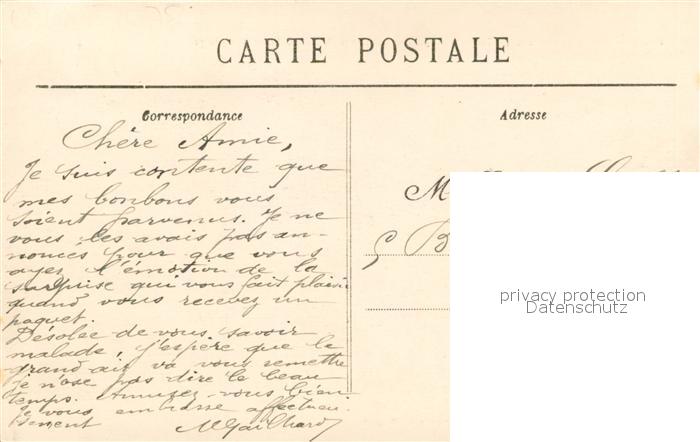 CARTE POSTALE
Correspondance
Adresse
Chère Amie,
Je suis contente que
mes bonbons vous
soient parvenus. Je ne
vous les avais pas an-
noncés pour que vous
ayez l'émotion de la
surprise qui vous fait plaisir
quand vous recevez un
paquet.
Désolée de vous savoir
malade, j'espère que le
grand air va vous remettre
je n'ose pas dire le beau
temps. Amusez-vous bien.
Je vous embrasse affectueu-
sement
M Gailhard
M
B
privacy protection
Datenschutz